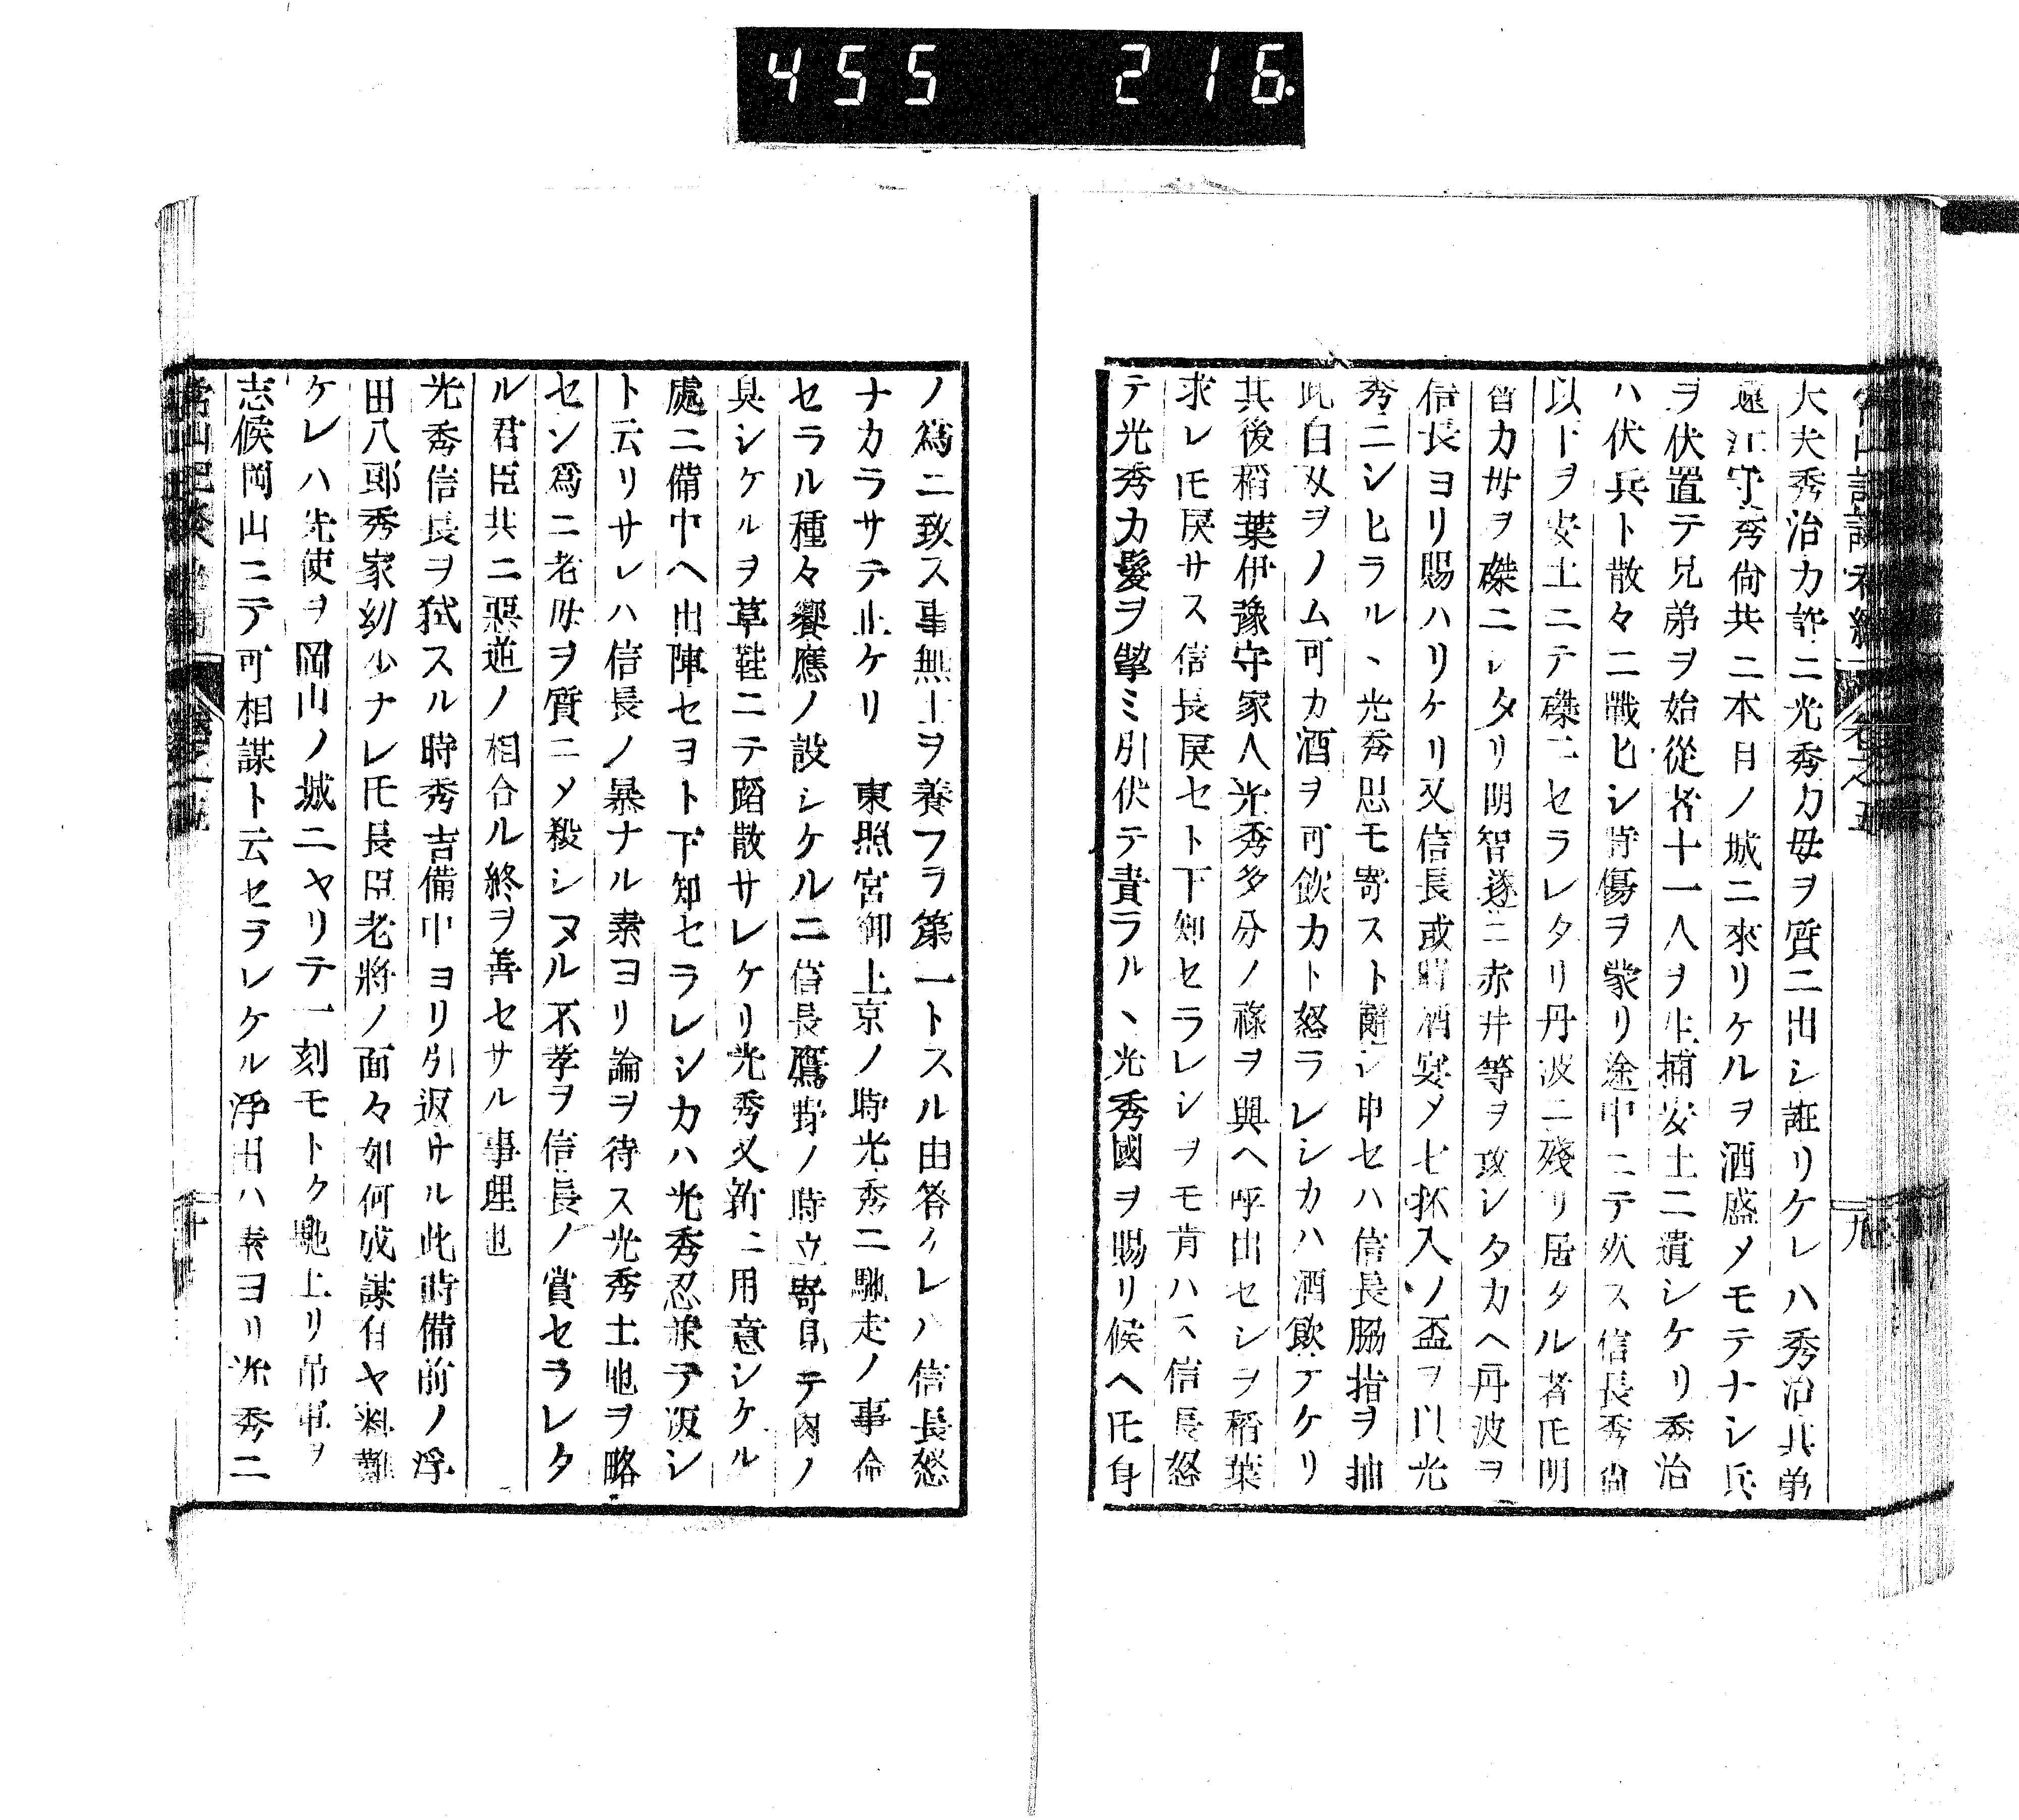 455 216.
大夫秀治カ許ニ光秀カ母ヲ質ニ出シ誑リケレハ秀治其弟
遠江守秀尚共ニ本目ノ城ニ來リケルヲ酒盛メモテナシ兵
ヲ伏置テ兄弟ヲ始從者十一人ヲ生捕安土ニ遣シケリ秀治
ハ伏兵ト散々ニ戰ヒシ時傷ヲ蒙リ途中ニテ死ス信長秀尚
以下ヲ安土ニテ磔ニセラレタリ丹波ニ殘リ居タル者𪜈明
智カ母ヲ磔ニシタリ明智遂ニ赤井等ヲ攻シタカヘ丹波ヲ
信長ヨリ賜ハリケリ又信長或時酒宴メ七杯入ノ盃ヲ以光
秀ニシヒラル丶光秀思モ寄スト辭シ申セハ信長脇指ヲ抽
此白刄ヲノム可カ酒ヲ可飲カト怒ラレシカハ酒飮テケリ
其後稻葉伊豫守家人光秀多分ノ祿ヲ與ヘ呼出セシヲ稻葉
求レ𪜈戾サス信長戾セト下知セラレシヲモ肯ハス信長怒
テ光秀カ髮ヲ摯ミ引伏テ責ラル丶光秀國ヲ賜リ候ヘ𪜈身
九
ノ爲ニ致ス事無士ヲ養フヲ第一トスル由答ケレハ信長怒
ナカラサテ止ケリ 東照宮御上京ノ時光秀ニ馳走ノ事命
セラル種々饗應ノ設シケルニ信長鷹野ノ時立寄見テ肉ノ
臭シケルヲ草鞋ニテ蹈散サレケリ光秀又新ニ用意シケル
處ニ備中ヘ出陣セヨト下知セラレシカハ光秀忍兼テ叛シ
ト云リサレハ信長ノ暴ナル素ヨリ論ヲ待ス光秀土地ヲ略
セン爲ニ老母ヲ質ニメ殺シヌル不孝ヲ信長ノ賞セラレタ
ル君臣共ニ惡逆ノ相合ル終ヲ善セサル事理也
光秀信長ヲ弑スル時秀吉備中ヨリ引返サル此時備前ノ浮
田八郎秀家幼少ナレ𪜈長臣老將ノ面々如何成謀有ヤ料難
ケレハ先使ヲ岡山ノ城ニヤリテ一刻モトク馳上リ吊軍ヲ
志候岡山ニテ可相謀ト云セラレケル浮田ハ素ヨリ光秀ニ
十